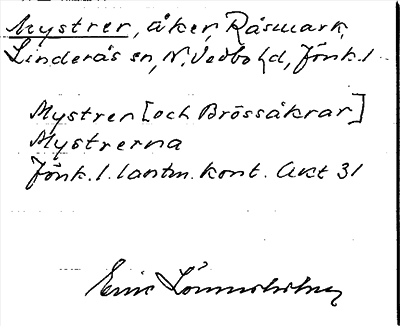 Mystrer, åker, Råsmark,
Linderås sn, N. Vedbo hd, Jönk. l.
Mystren [och Brössåkrar]
Mystrerna
Jönk. l. lantm. kont. Akt 31
Eric